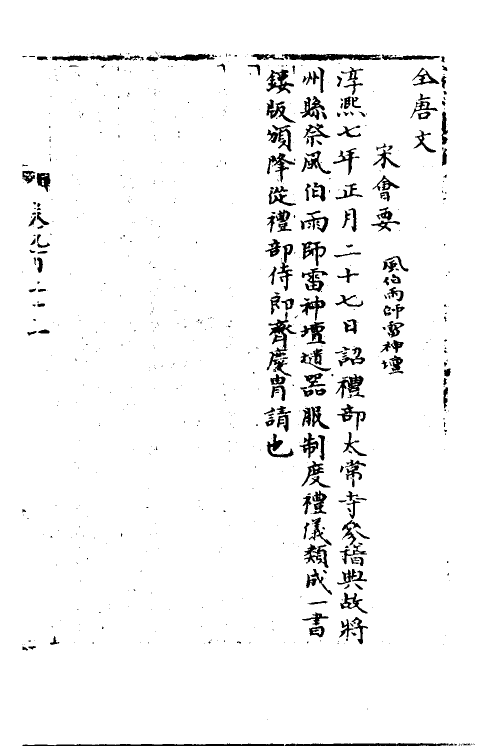 全唐文
宋會要 風伯雨師雷神壇
淳熙七年正月二十七日詔禮部太常寺參稽典故將
州縣祭風伯雨師雷神壇壝器服制度禮儀類成一書
鏤版頒降從禮部侍郎齊慶胄請也